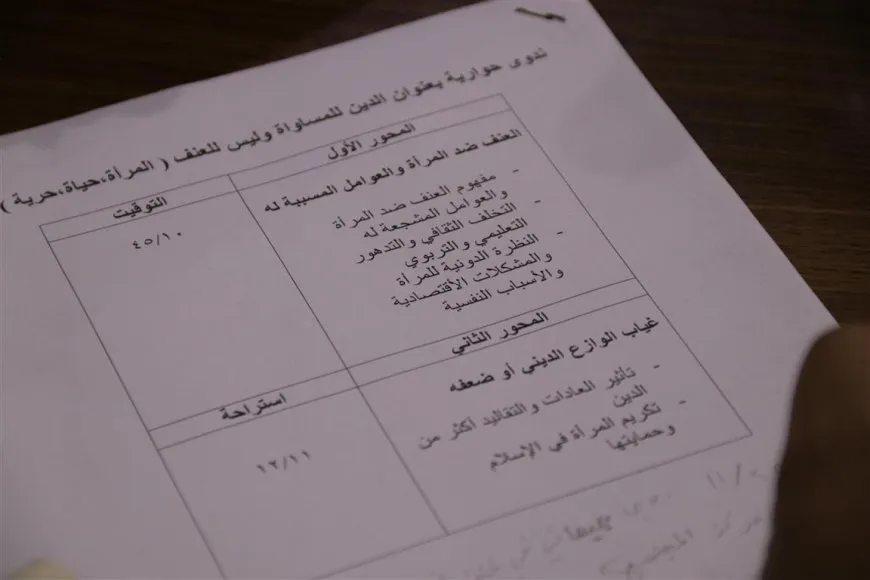 ندوى حوارية بعنوان الدين للمساواة وليس للعنف ( المرأة،حياة،حرية )
المحور الأول
التوقيت
العنف ضد المرأة والعوامل المسببة له
- مفهوم العنف ضد المرأة
والعوامل المشجعة له
- التخلف الثقافي والتدهور
التعليمي و التربوي
- النظرة الدونية للمرأة
والمشكلات الأقتصادية
والأسباب النفسية
٤٥/١٠
المحور الثاني
استراحة
غياب الوازع الديني أو ضعفه
- تأثير العادات و التقاليد أكثر من
الدين
- تكريم المرأة في الإسلام
وحمايتها
١٢/١١